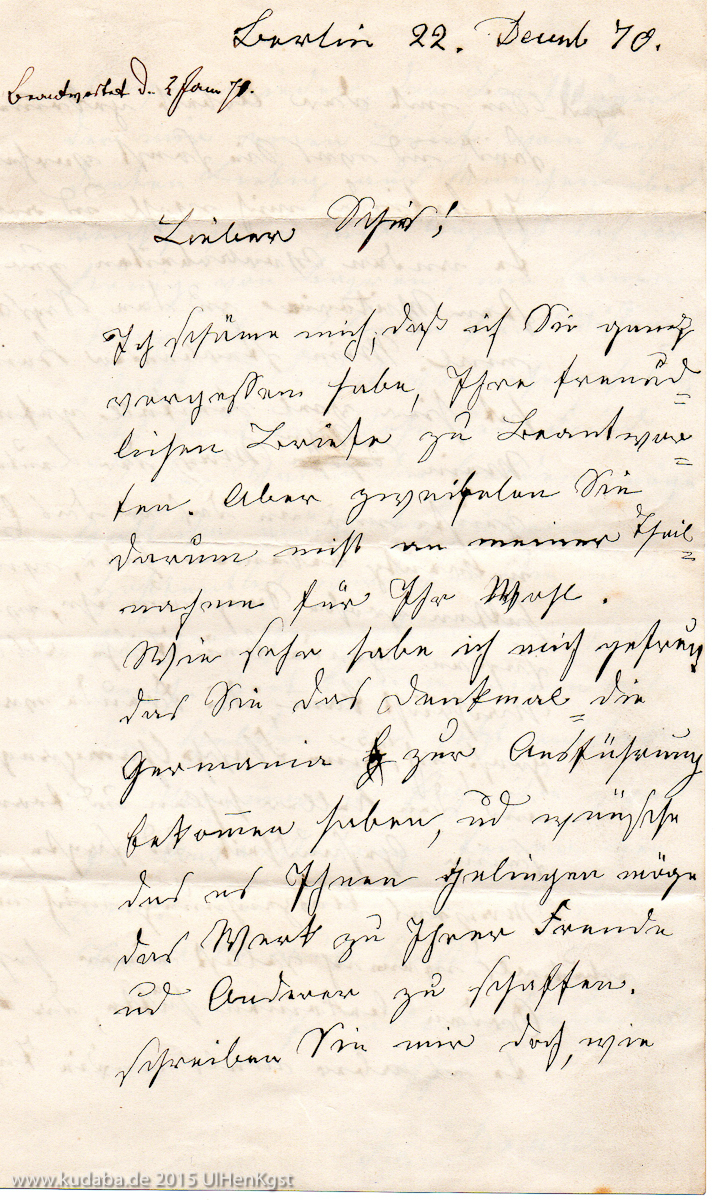 Berlin 22. Decemb 70.
Beantwortet d. 2 Janr 71.
Lieber Schis!
Ich schäme mich, daß ich Sie ganz
vergessen habe, Ihre freund=
lichen Briefe zu Beantwor=
ten. Aber zweifelen Sie
darum nicht an meiner Theil=
nahme für Ihr Wohl.
Wie sehr habe ich mich gefreut
das Sie das Denkmal= die
Germania zur Ausführung
bekommen haben, ud wünsche
das es Ihnen gelingen möge
das Werk zu Ihrer Freude
ud Anderer zu schaffen.
schreiben Sie mir doch, wie
www.kudaba.de 2015 UlHenKgst